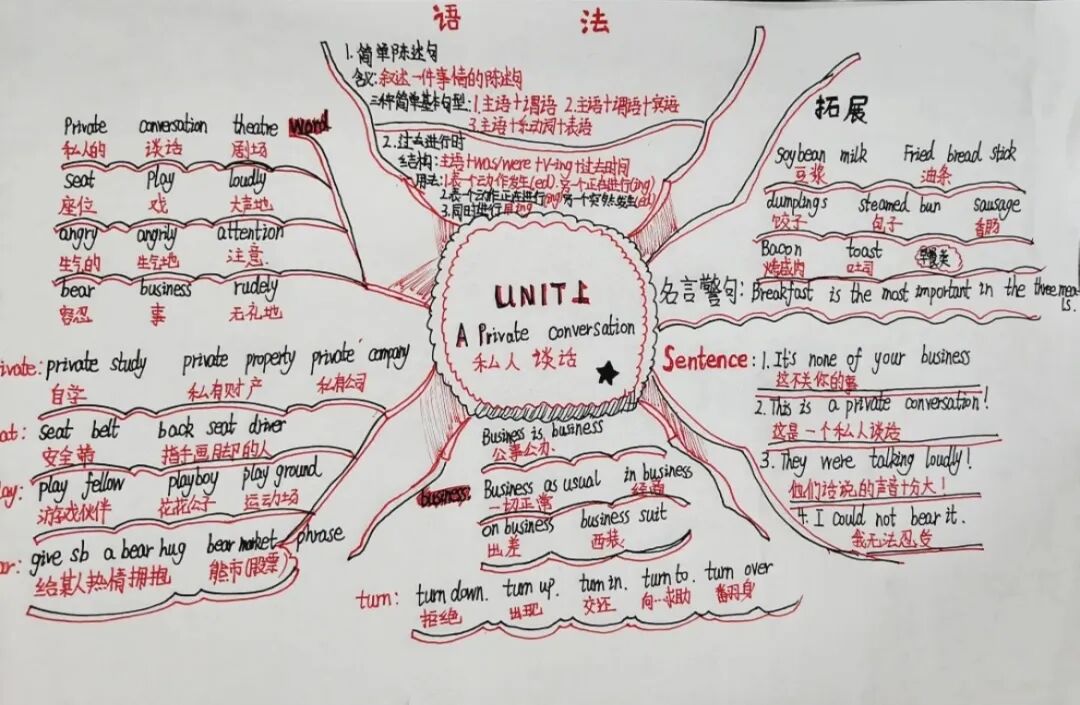 语 法
1. 简单陈述句
含义:叙述一件事情的陈述句
三种简单基本句型:1.主语+谓语 2.主语+谓语+宾语
3.主语+系动词+表语
2. 过去进行时
结构:主语+was/were+V-ing+过去时间
用法:1.表一个动作发生(ed).另一个正在进行(ing)
2.表一个动作正在进行(ing)另一个突然发生(ed)
3.同时进行
Private conversation theatre word
私人的 谈话 剧场
seat play loudly
座位 戏 大声地
angry angrily attention
生气的 生气地 注意.
bear business rudely
容忍 事 无礼地
拓展
Soybean milk Fried bread stick
豆浆 油条
dumplings steamed bun sausage
饺子 包子 香肠
Bacon toast 早餐类
烤咸肉 吐司
名言警句: Breakfast is the most important in the three meals.
UNIT上
A Private conversation
私人 谈话
ivate: private study private property private company
自学 私有财产 私有公司
at: seat belt back seat driver
安全带 指手画脚的人
ay: play fellow playboy play ground
游戏伙伴 花花公子 运动场
ar: give sb a bear hug bear market phrase
给某人热情拥抱 熊市(股票)
Sentence: 1. It's none of your business
这不关你的事
2. This is a private conversation!
这是一个私人谈话
3. They were talking loudly!
他们说话的声音十分大!
4. I could not bear it.
我无法忍受
Business is business
公事公办.
business: Business as usual in business
一切正常 经商
on business business suit
出差 西装
turn: turn down. turn up. turn in. turn to. turn over
拒绝 出现 交还 向…求助 翻身